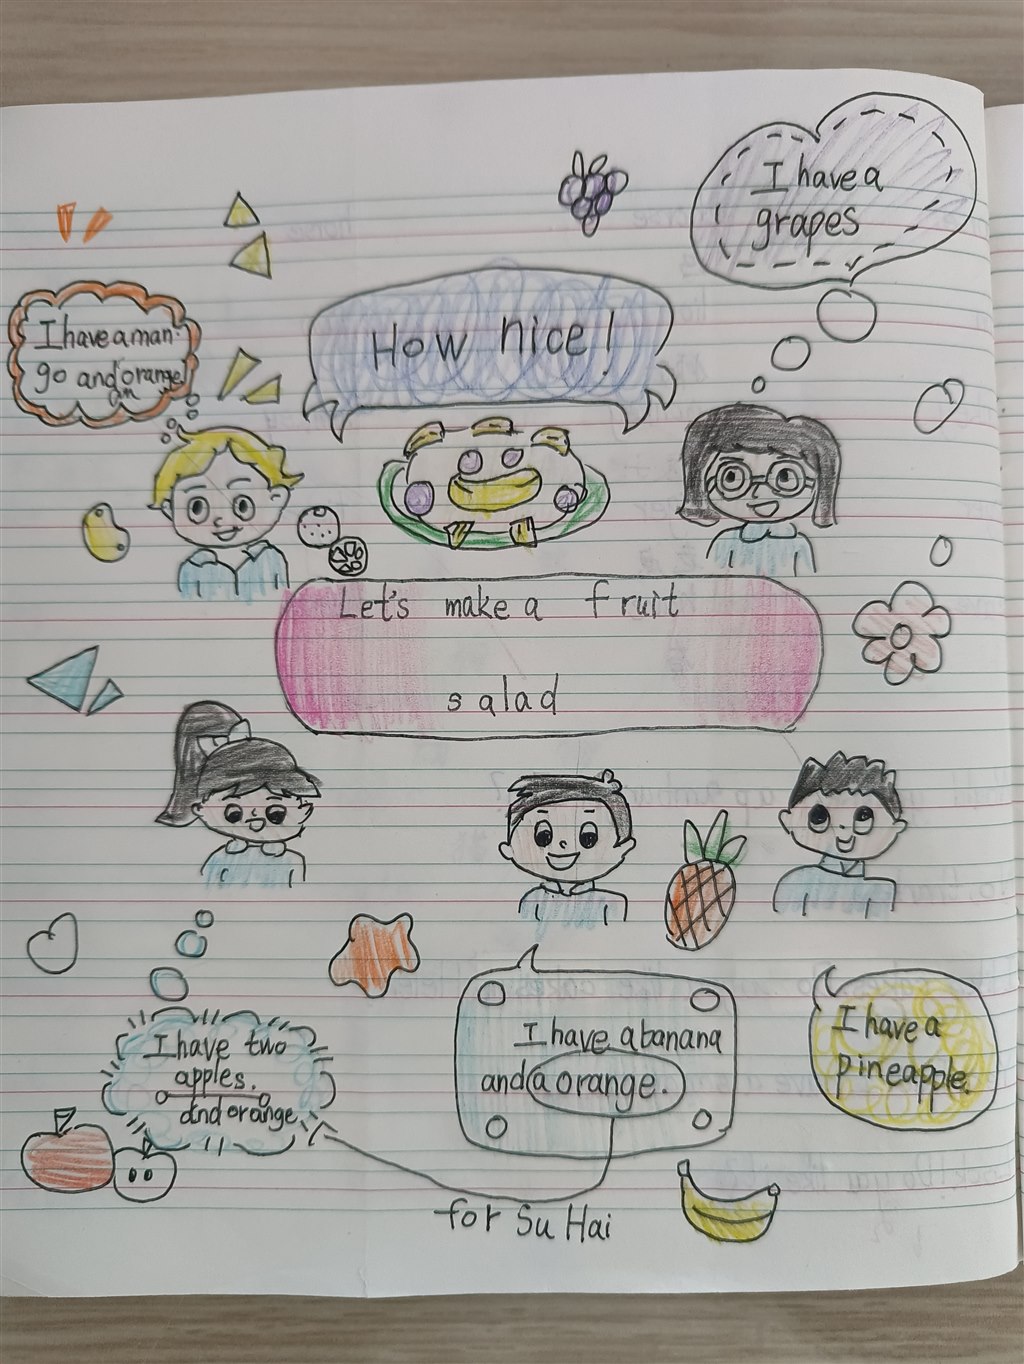 I have a
grapes
I have a man
go and orange
an
How nice!
Let's make a fruit
salad
I have two
apples.
and orange
I have a banana
and a orange.
I have a
pineapple.
for Su Hai